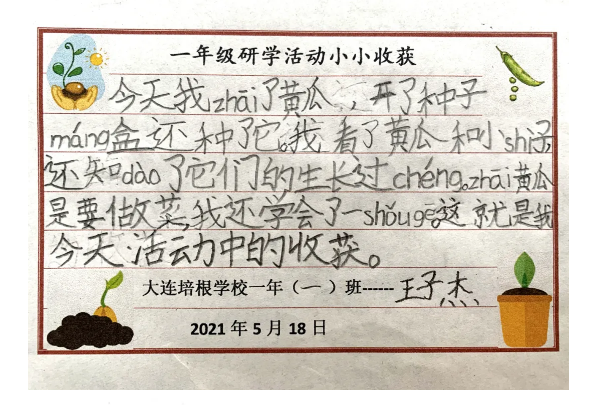 一年级研学活动小小收获
今天我zhāi了黄瓜，开了种子
máng盒还种了它。我看了黄瓜和小shì子，
还知dào了它们的生长过chéng。zhāi黄瓜
是要做菜，我还学会了一shǒugē。这就是我
今天活动中的收获。
大连培根学校一年（一）班------王子杰
2021年5月18日